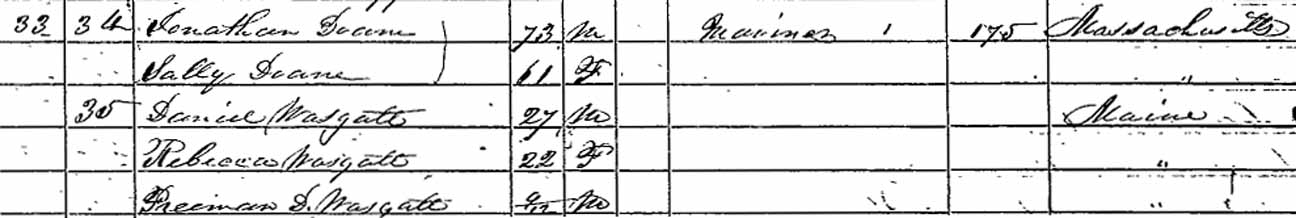 33 34 Jonathan Doane 73 M Mariner 1 175 Massachusetts
Sally Doane 61 F "
35 Daniel Wasgatt 27 M Maine
Rebecca Wasgatt 22 F "
Freeman D. Wasgatt M "